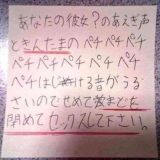 あなたの彼女?のあえぎ声
ときんたまのペチペチ
ペチペチペチペチペチ
ペチペチペチペチペチ
ペチはじける音がうる
さいのでせめて窓まどを
閉めてセックスして下さい。